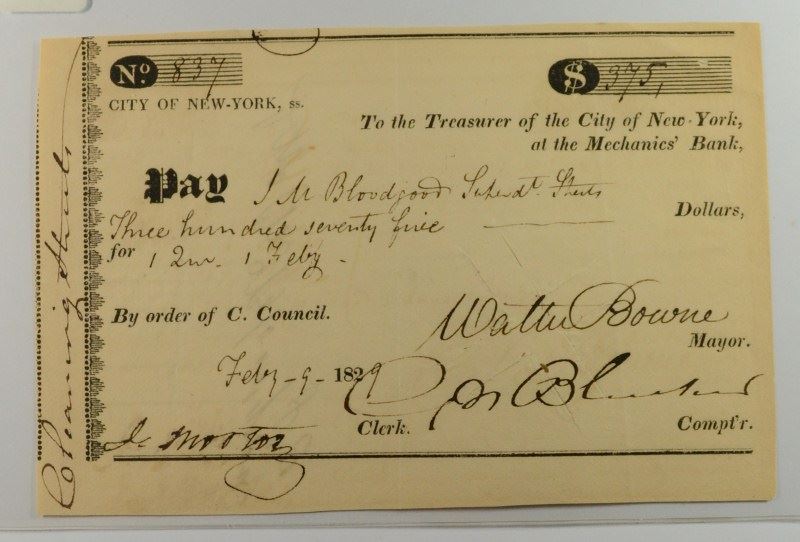 No. 837
$ 375,
CITY OF NEW-YORK, ss.
To the Treasurer of the City of New-York,
at the Mechanics' Bank,
Pay J M Bloodgood Supendt. Streets
Three hundred seventy five Dollars,
for 1 Qur. 1 Feby.
By order of C. Council.
Walter Bowne
Mayor.
Feby - 9 - 1829
J. Morton
Clerk.
Compt'r.
Cleaning Streets